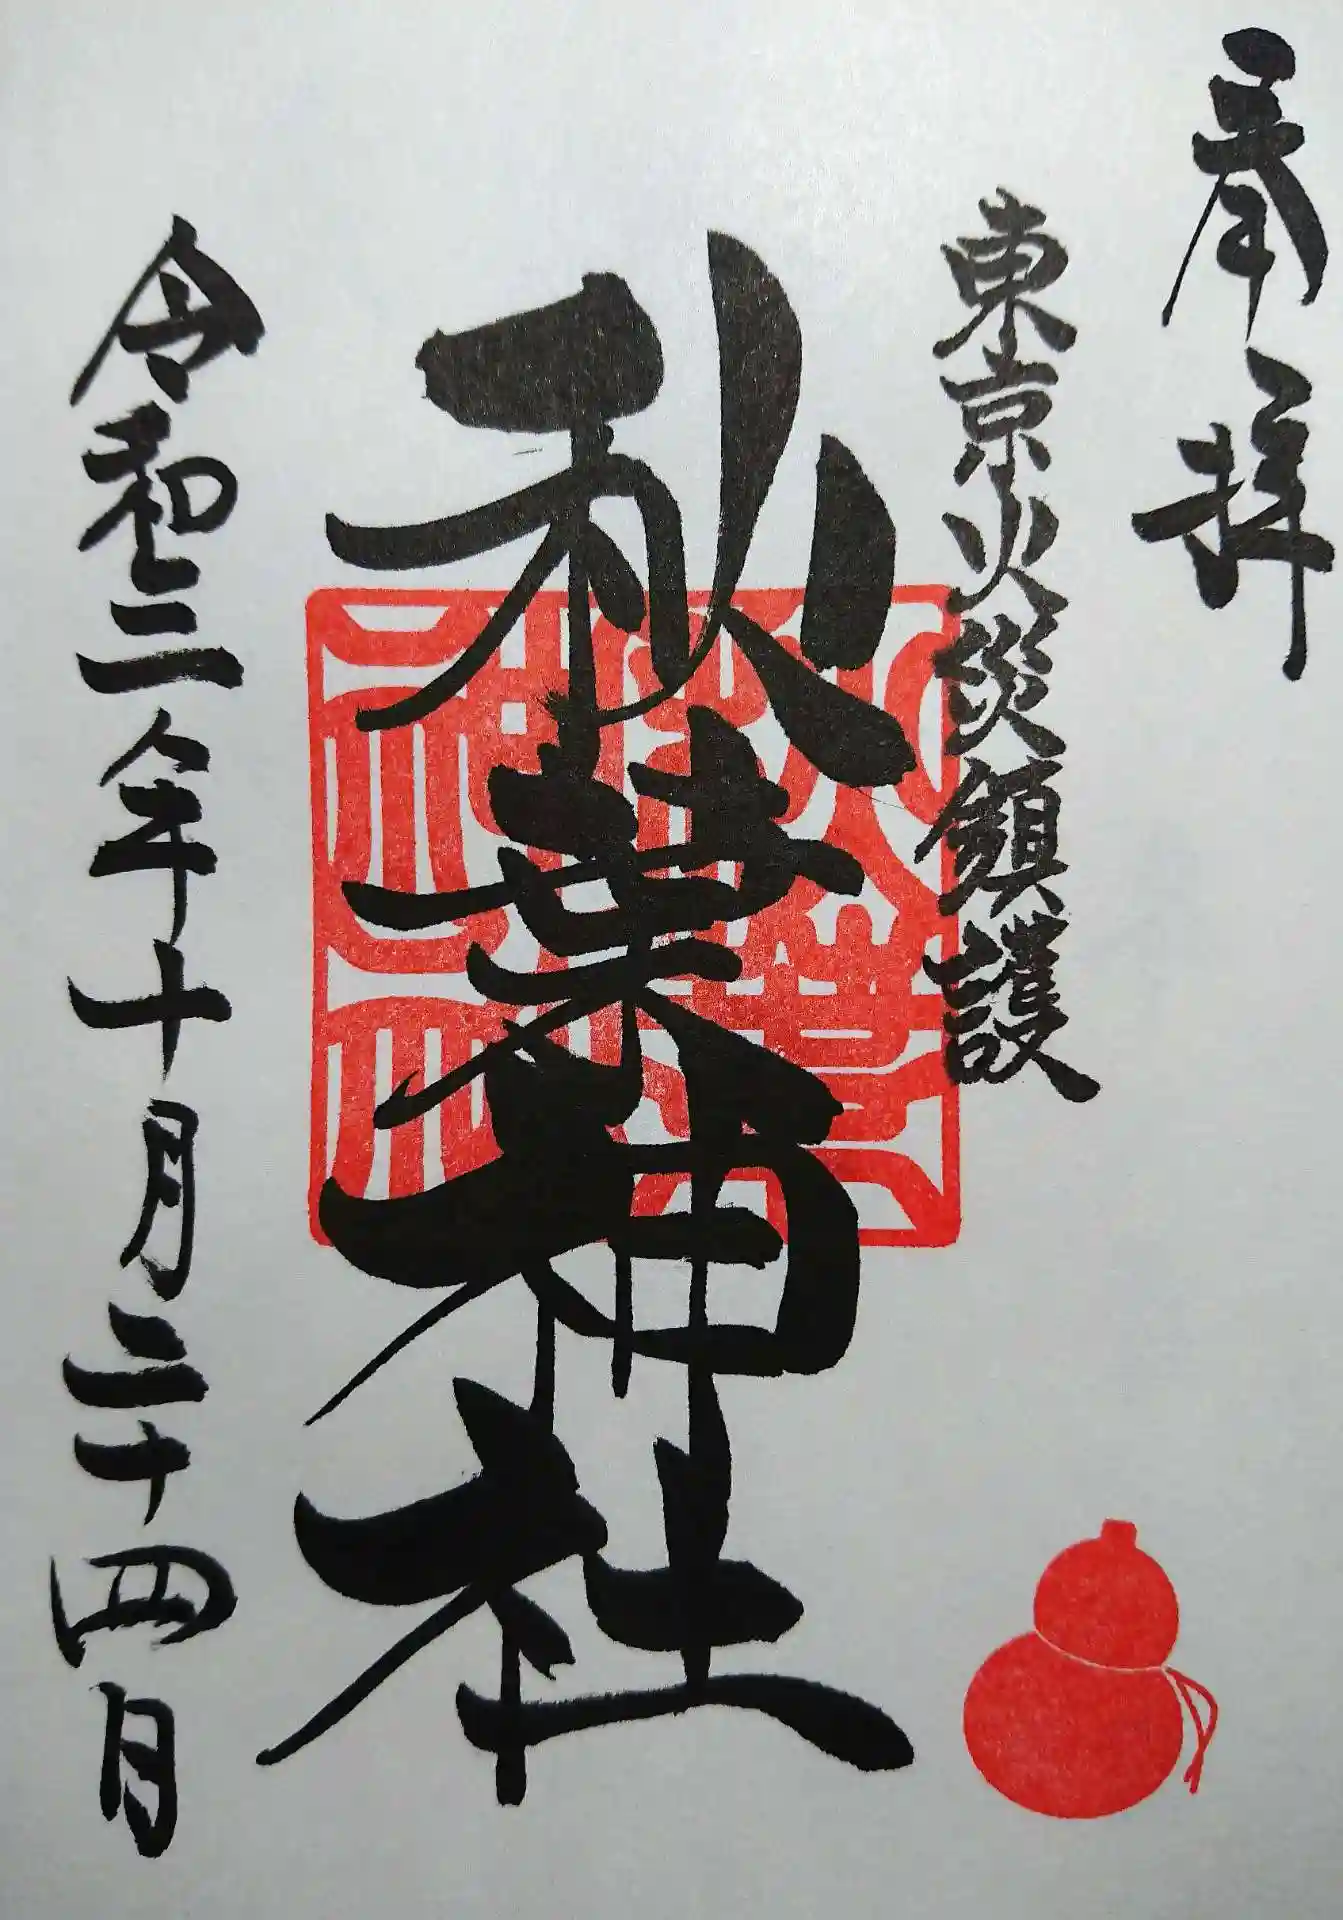 奉拝
東京火災鎮護
秋葉神社
令和二年十月二十四日